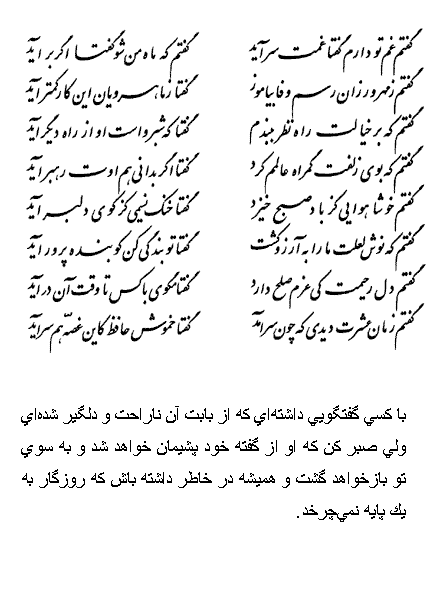 گفتم غم تو دارم گفتا غمت سرآید گفتم که ماه من شو گفتا اگر برآید
گفتم ز مهرورزان رسم وفا بیاموز گفتا ز ماهرویان این کار کمتر آید
گفتم که بر خیالت راه نظر ببندم گفتا که شبروست او از راه دیگر آید
گفتم که بوی زلفت گمراه عالمم کرد گفتا اگر بدانی هم اوت رهبر آید
گفتم خوشا هوایی کز باد صبح خیزد گفتا خنک نسیمی کز کوی دلبر آید
گفتم که نوش لعلت ما را به آرزو کشت گفتا تو بندگی کن کو بنده پرور آید
گفتم دل رحیمت کی عزم صلح دارد گفتا مگوی با کس تا وقت آن درآید
گفتم زمان عشرت دیدی که چون سرآمد گفتا خموش حافظ کاین غصه هم سرآید
با كسي گفتگويي داشته‌اي كه از بابت آن ناراحت و دلگير شده‌اي
ولي صبر كن كه او از گفته خود پشيمان خواهد شد و به سوي
تو بازخواهد گشت و هميشه در خاطر داشته باش كه روزگار به
يك پايه نمي‌چرخد.